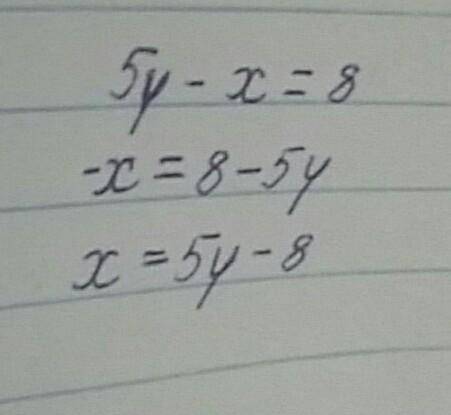 5y - x = 8
-x = 8 - 5y
x = 5y - 8